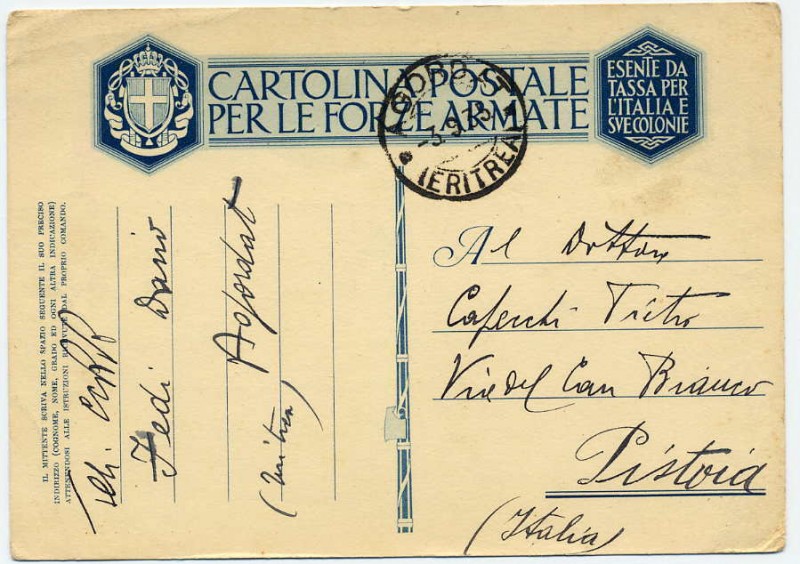 CARTOLINA POSTALE
PER LE FORZE ARMATE
ESENTE DA
TASSA PER
L'ITALIA E
SVE COLONIE
AGORDAT
-3.9.
(ERITREA)
IL MITTENTE SCRIVA NELLO SPAZIO SEGUENTE IL SUO PRECISO
INDIRIZZO (COGNOME, NOME, GRADO ED OGNI ALTRA INDICAZIONE)
ATTENENDOSI ALLE ISTRUZIONI RICEVUTE DAL PROPRIO COMANDO.
Fedi Dario
Agordat
(Eritrea)
Al Dottore
Capecchi
Via del Can Bianco
Pistoia
(Italia)